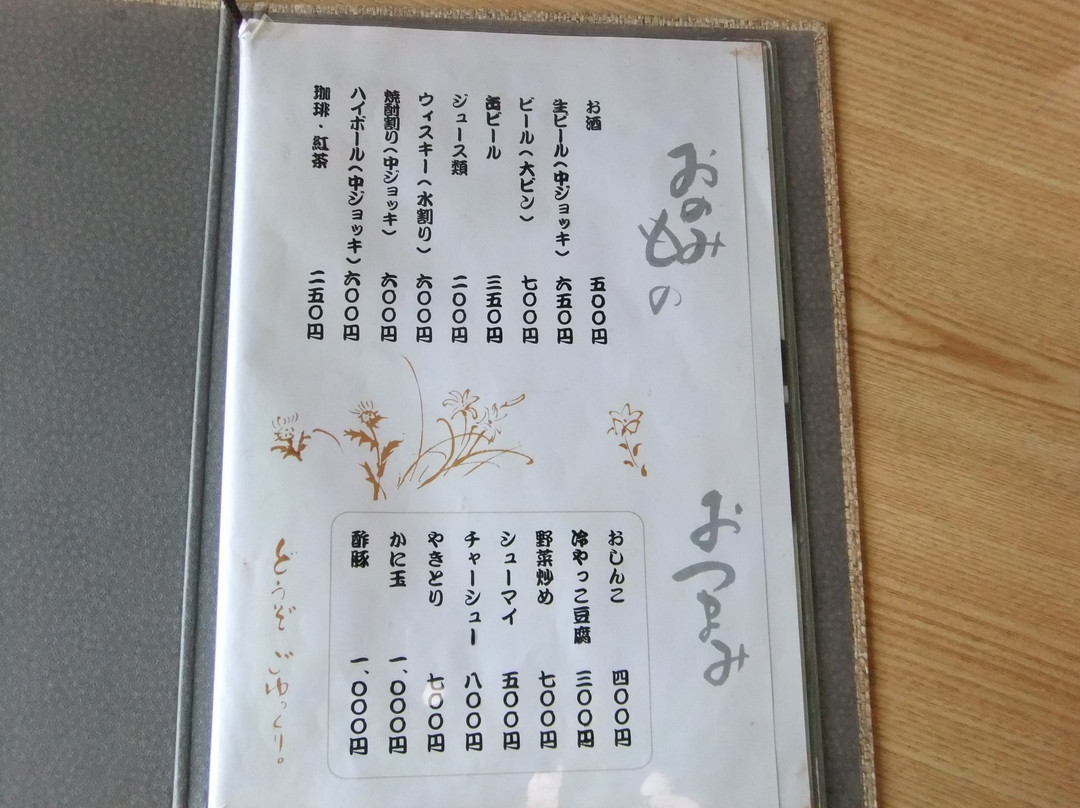 おのみもの
お酒 五〇〇円
生ビール(中ジョッキ) 六五〇円
ビール(大ビン) 七〇〇円
缶ビール 三五〇円
ジュース類 二〇〇円
ウィスキー(水割り) 六〇〇円
焼酎割り(中ジョッキ) 六〇〇円
ハイボール(中ジョッキ) 六〇〇円
珈琲・紅茶 二五〇円
おつまみ
おしんこ 四〇〇円
冷やっこ豆腐 三〇〇円
野菜炒め 七〇〇円
シューマイ 五〇〇円
チャーシュー 八〇〇円
やきとり 七〇〇円
かに玉 一、〇〇〇円
酢豚 一、〇〇〇円
どうぞ ごゆっくり。